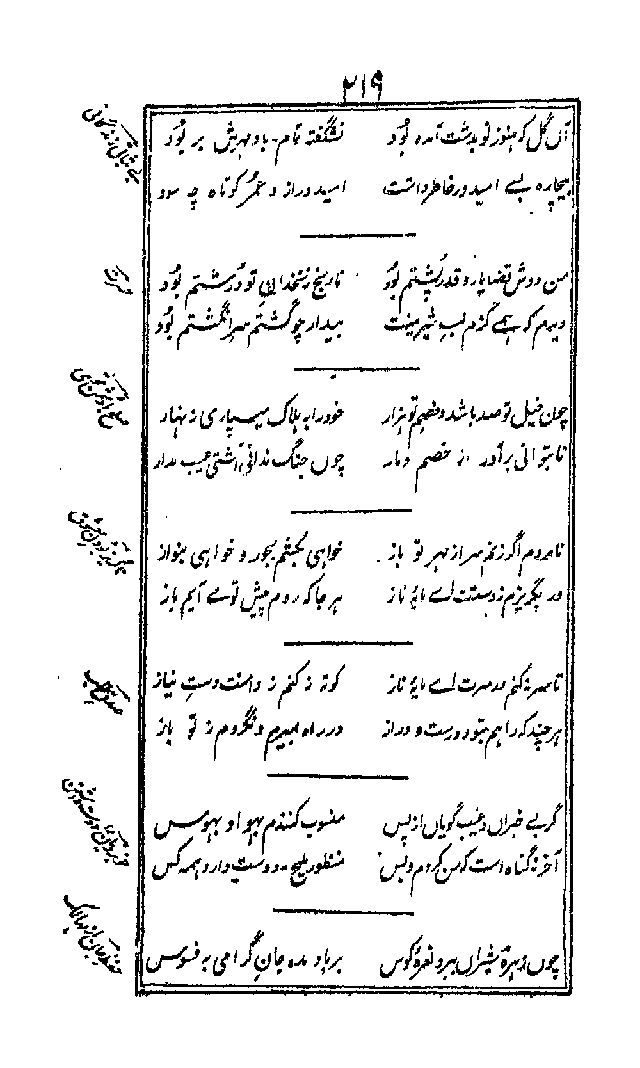 ۲۱۹
آں گل کہ ہنوز نو بدست آمدہ بُوَد    نشگفتہ تمام باد مہریش بر بُوَد
بیچارہ بسے امید در خاطر داشت    امید دراز و عمر کوتاہ چہ سود
حسرت
من دوش قضا یار و قدر پُشتم بُوَد    نارنج زنخدانِ تو در مشتم بُوَد
دیدم کہ ہمے گزم لبِ شیرینت    بیدار چو گشتم سر انگشتم بُوَد
چوں خیل تو صد باشد و خصم تو ہزار    خود را بہ ہلاک میسپاری زنہار
تا بتوانی برآور از خصم دمار    چوں جنگ ندانی آشتی عیب مدار
نامردم اگر زنم سر از مہر تو باز    خواہی بکشم بجور و خواہی بنواز
ور بگریزم ز دستت اے مایۂ ناز    ہر جا کہ روم پیش تو مے آیم باز
تا سر نکنم در سرت اے مایۂ ناز    کوتہ نکنم ز دامنت دستِ نیاز
ہر چند کہ راہم بتو دورست و دراز    در راہ بمیرم و نگردم ز تو باز
گر بے خبراں و عیب گویاں از پس    منسوب کنندم بہوا و بہوس
آخر نہ گناہ است کہ من کردم و بس    منظور ملیح دوست دارد ہمہ کس
چوں زہرۂ شیراں بدرد نعرۂ کوس    برباد مدہ جانِ گرامی بہ فسوس